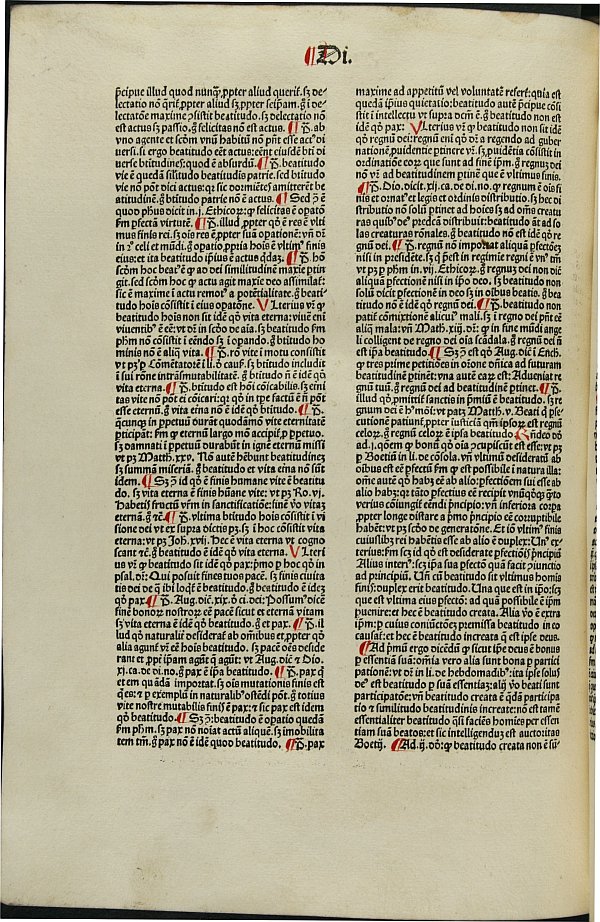 ¶ Di.
pͥcipue illud quod nunqͣ ꝓpter aliud querit᷑. sꝫ de-
lectatio nō qͥrit᷑ ꝓpter aliud sꝫ ꝓpter seipam̄. g̊ de-
lectatōe maxime ꝯsistit beatitudo. sꝫ delectatio nō
est actus sꝫ passio. g̊ felicitas nō est actus. ¶ P̄. ab
vno agente et scd̄m vnū habitū nō pn̄t esse actꝰ di
uersi. si ergo beatitudo eēt actus: eēnt eiusdē bt̄i di
uerse btitudines: quod ē absurdū. ¶ P̄. beatitudo
vie ē quedā sil̄itudo beatitudis patrie. sed btitudo
vie nō pōt dici actus: qꝛ sic dormiētes amitterēt be
atitudinē. g̊ btitudo patrie nō ē actus. ¶ Sed ꝯ ē
quod ph̄us dicit in .j. Ethicoꝝ: ꝙ felicitas ē opatō
fm̄ pfectā virtutē. ¶ P̄. illud ꝓpter qd̓ ē res ē vlti
mus finis rei. sꝫ ois res ē ꝓpter suā opationē: vn̄ dr̄
in .2. celi et mūdi. g̊ opatio ꝓpria hoīs ē vltimꝰ finis
eius: et ita beatitudo ip̄ius ē actus qdaꝫ. ¶ P̄. hō
scd̄m hoc beatꝰ ē ꝙ ad dei similitudinē maxīe ptin
git. sed scd̄m hoc ꝙ actu agit maxīe deo assimilat᷑:
sic ē maxīe ī actu remotꝰ a potētialitate. g̊ beati
tudo hoīs cōsistit ī eius opatōne. Vlterius vr̄ ꝙ
beatitudo hoīs non sit idē qd̓ vita eterna: viuē enī
viuentibꝰ ē eē: vt dr̄ in scd̓o de aīa. sꝫ beatitudo fm̄
phm̄ nō cōsistit ī eēndo sꝫ ī opando. g̊ btitudo ho
minis nō ē aliq̄ vita. ¶ P̄. rō vite ī motu consistit
vt pꝫ p Cōmētatorē ī li. ō cauſ. sꝫ btitudo includit
ī sui rōne intrāsmutabilitatē. g̊ btitudo n̄ ē idē qd̓
vita eterna. ¶ P̄. btitudo est hoī cōicabilis. sꝫ eīni
tas vite nō pōt ei cōicari: qꝛ qd̓ in tpe factū ē n̄ pōt
esse eternū. g̊ vita eīna nō ē idē qd̓ btitudo. ¶ P̄.
qcunqꝫ in ppetuū durāt quodāmō vite eternitatē
pticipāt: fm̄ ꝙ eternū largo mō accipit᷑ ꝓ ppetuo.
sꝫ damnati ī ppetuū durabūt in ignē eternū missi
vt pꝫ Math. xxv. Nō autē hēbunt beatitudineꝫ
sꝫ summā miseriā. g̊ beatitudo et vita eīna nō sūt
idem. ¶ Sꝫ ꝯ id qd̓ ē finis humane vite ē beatitu
do. sꝫ vita eterna ē finis hūane vite: vt pꝫ Ro. vj.
Habetis fructū vrm̄ in sanctificatōe: finē vo vitaꝫ
eternā. g̊ ꝛc̄. ¶ P̄. vltima btitudo hoīs cōsistit ī vi
sione dei vt ex supra dictis pꝫ. sꝫ ī hoc cōsistit vita
eterna: vt pꝫ Joh. xvij. Hec ē vita eterna vt cogno
scant ꝛc̄. g̊ beatitudo ē idē qd̓ vita eterna. Vlteri
us vr̄ ꝙ beatitudo sit idē qd̓ pax: pͥmo p hoc qd̓ in
psal. dr̄: Qui posuit fines tuos pacē. sꝫ finis ciuita
tis dei de q̄ ibi loqͥt᷑ ē beatitudo. g̊ beatitudo ē ideꝫ
qd̓ pax. ¶ P̄. Aug. dicit .xix. ō ci. dei: Possumꝰ dicē
finē bonoꝝ nostroꝝ eē pacē sicut et eternā vitam
sꝫ vita eterna ē idē qd̓ btitudo. g̊ et pax. ¶ P̄. il
lud qd̓ naturalit̓ desiderat᷑ ab omībus et ꝓpter qd̓
alia agunt᷑ vr̄ eē hoīs beatitudo. sꝫ pacē oēs deside
rant et ꝓpt̓ ipam̄ agūt qͣ agūt: vt Aug. dicit ⁊ Dio.
xj. ca. de di. no. g̊ pax ē ip̄a beatitudo. ¶ P̄. pax q̄
et em quādā importat. sꝫ oīs mutationis finis est
ques: vt p exemplū in naturalibꝰ ostēdi pōt. g̊ totius
vite nostre mutabilis finis ē pax: ⁊ sic pax est idem
qd̓ beatitudo. ¶ Sꝫ ꝯ: beatitudo ē opatio quedā
fm̄ phm̄. sꝫ pax nō noīat actū aliquē. sꝫ īmobilita
tem tm̄. g̊ pax nō ē idē quod beatitudo. ¶ P̄. pax
maxime ad appetitū vel voluntatē refert᷑: quia est
quedā ip̄ius quietatio: beatitudo autē pͥncipe cōsi
stit ī intellectu vt supra dcm̄ ē. g̊ beatitudo non est
idē qd̓ pax. Vlterius vr̄ ꝙ beatitudo non sit idē
qd̓ regnū dei: regnū eni qd̓ dr̄ a regendo ad guber
nationē ꝓuidentie ptinere vr̄. sꝫ ꝓuidētia cōsistit in
ordinatiōe eoꝝ que sunt ad finē ipm̄. g̊ regnuꝫ dei
nō vr̄ ad beatitudinem ptinē que ē vltimus finis.
¶ P̄. Dio. dicit .xij. ca. de di. no. ꝙ regnum ē oīs fi
nis et ornatꝰ et legis et ordinis distributio. sꝫ hec di
stributio nō solū ptinet ad hoīes sꝫ ad om̄s creatu
ras quibꝰ deꝰ predca distribuit: beatitudo āt ad so
las creaturas rōnales. g̊ beatitudo nō est idē qd̓ re
gnū dei. ¶ P̄. regnū nō importat aliquā pfectōeꝫ
nisi in presidēte. sꝫ q̄ p̄est in regimīe regni ē vnꝰ tm̄
vt pꝫ p phm̄ in .vij. Ethicoꝝ. g̊ regnuꝫ dei non dic̄
aliquā pfectionē nisi in ipo deo. sꝫ beatitudo non
solū dicit pfectionē in deo sꝫ in oībus beatis. g̊ bea
titudo nō ē idē qd̓ regnū dei. ¶ P̄. beatitudo non
patit᷑ cōmixtionē alicuiꝰ mali. sꝫ ī regno dei pn̄t eē
aliq̄ mala: vn̄ Math. xiij. dr̄: ꝙ in fine mūdi ange
li colligent de regno dei oīa scādala. g̊ regnū dei n̄
est ip̄a beatitudo. ¶ Sꝫ ꝯ est qd̓ Aug. dic̄ ī Ench.
ꝙ tres prime petitiōes in orōne dn̄ica ad futuram
beatitudinē ptinēt: vna autē eaꝝ est: Adueniat re
gnū tuū. g̊ regnū dei ad beatitudinē ptinet. ¶ P̄.
illud qd̓ ꝓmittit᷑ sanctis in pͥmiū ē beatitudo. sꝫ re
gnum dei ē hꝰmōi: vt patꝫ Matth. v. Beati q̄ pse
cutionē patiunt᷑ ꝓpter iusticiā qm̄ ipsoꝝ est regnū
celoꝝ. g̊ regnū celoꝝ ē ipsa beatitudo. Rn̄deo dō
ad .j. qōem ꝙ bonū qd̓ oīa ꝯcupiscūt est esse: vt pꝫ
p Boetiū in li. de cōsola. vn̄ vltimū desideratū ab
oībus est eē pfectū fm̄ ꝙ est possibile ī natura illa:
om̄e autē qd̓ habꝫ eē ab alio: pfectiōem sui esse ab
alio habꝫ: qꝛ tāto pfectius eē recipit vnūqd̓qꝫ qͣto
verius cōiungit᷑ eēndi pͥncipio: vn̄ inferiora corpa
ꝓpter longe distare a pͥmo pͥncipio eē corruptibile
habēt: vt pꝫ scd̓o de generatōne. Et iō vltimꝰ finis
cuiuslibꝫ rei habētis esse ab alio ē duplex: Unꝰ ex-
terius: fm̄ scꝫ id qd̓ est desiderate pfectiōis pͥncipiū
Alius interiꝰ: scꝫ ip̄a sua pfectō quā facit ꝯiunctio
ad principiū. Un̄ cū beatitudo sit vltimus homīs
finis: duplex erit beatitudo. Una que est in ip̄o: scꝫ
que est vltima eius pfectō: ad quā possibile ē ipm̄
puenire: et hec ē beatitudo creata. Alia vo ē extra
ipm̄: p cuius coniūctōeꝫ premissa beatitudo in eo
causat᷑: et hec ē beatitudo increata q̄ est ip̄e deus.
¶ Ad pͥmū ergo dicēdū ꝙ sicut ipe deus ē bonus
p essentiā suā: om̄ia vero alia sunt bona p partici
pationē: vt dr̄ in li. de hebdomadibꝰ: ita ip̄e solus
deꝰ est beatitudo p suā essentiaꝫ: alij vō beati sunt
participatōe: vn̄ beatitudo creata ē qdā participa
tio ⁊ similitudo beatitudinis increate: nō est tamē
essentialiter beatitudo qͣsi faciēs homīes per essen
tiam suā beatos: et sic intelligenduꝫ est auctoritas
Boetij. ¶ Ad .ij. dō: ꝙ beatitudo creata non ē su-